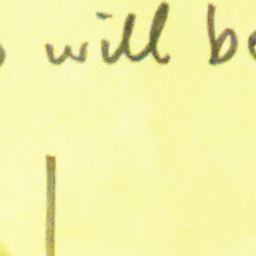 will be